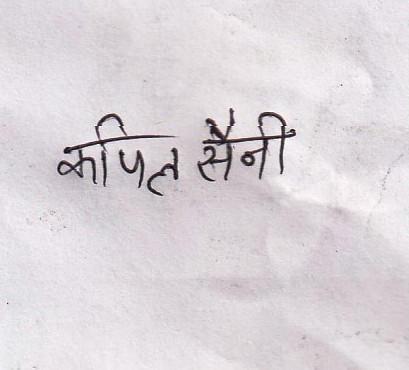 कपिल सैनी